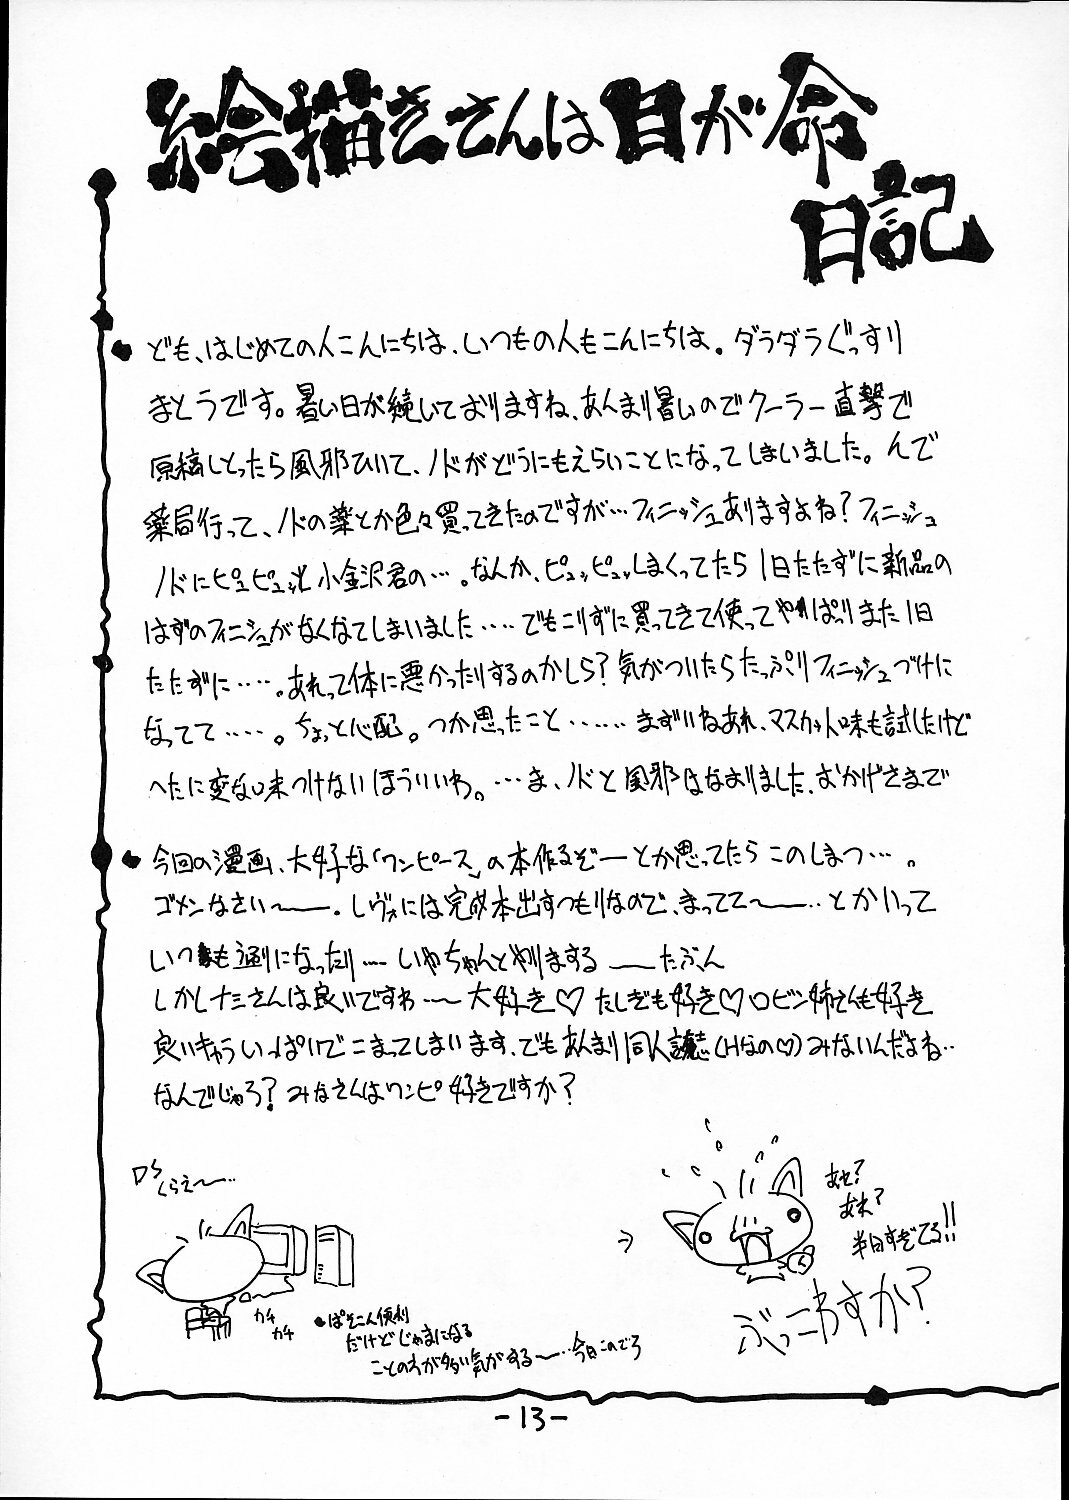 絵描きさんは目が命
日記
ども、はじめての人こんにちは、いつもの人もこんにちは。ダラダラぐっすり
まとうです。暑い日が続いておりますね、あんまり暑いのでクーラー直撃で
原稿しとったら風邪ひいて、ノドがどうにもえらいことになってしまいました。んで
薬局行って、ノドの薬とか色々買ってきたのですが…フィニッシュありますよね?フィニッシュ
ノドにピュピュッと小金沢君の…。なんか、ピュッピュッしまくってたら1日たたずに新品の
はずのフィニシュがなくなてしまいました‥‥でもこりずに買ってきて使ってやっぱりまた1日
たたずに‥‥。あれって体に悪かったりするのかしら?気がついたらたっぷりフィニッシュづけに
なってて‥‥。ちょっと心配。つか思ったこと‥‥‥まずいねあれ、マスカット味も試したけど
へたに変な味つけないほういいわ。…ま、ノドと風邪はなおりました、おかげさまで
今回の漫画、大好な「ワンピース」の本作るぞーとか思ってたらこのしまつ…。
ゴメンなさい〜ー。レヴォには完成本出すつもりなので、まってて〜ー‥とかいって
いつも通りになったり‥‥いやちゃんとやりまする ―たぶん
しかしナミさんは良いですわ―〜大好き♡たしぎも好き♡ロビン姉さんも好き
良いきゃらいっぱいでこまってしまいます、でもあんまり同人誌(Hなの♡)みないんだよね‥
なんでじゃろ?みなさんはワンピ好きですか?
くらえ〜‥
カチ
カチ
ぱそこん便利
だけどじゃまになる
ことの方が多い気がする〜‥今日このごろ
あせ?
あれ?
半日すぎてる!!
ぶっこわすか?
-13-